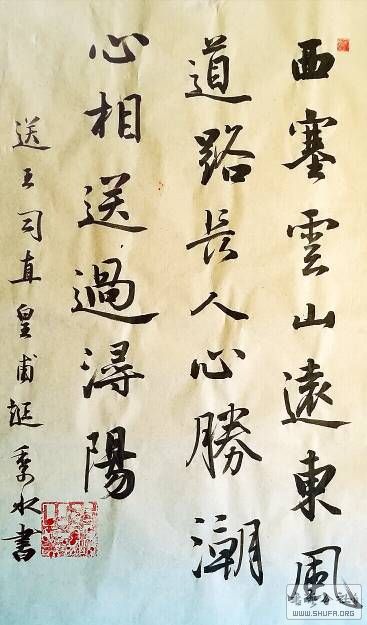 西塞雲山遠東風
道路長人心勝潮
心相送過潯陽
送王司直皇甫 秀水書
WWW.SHUFA.ORG